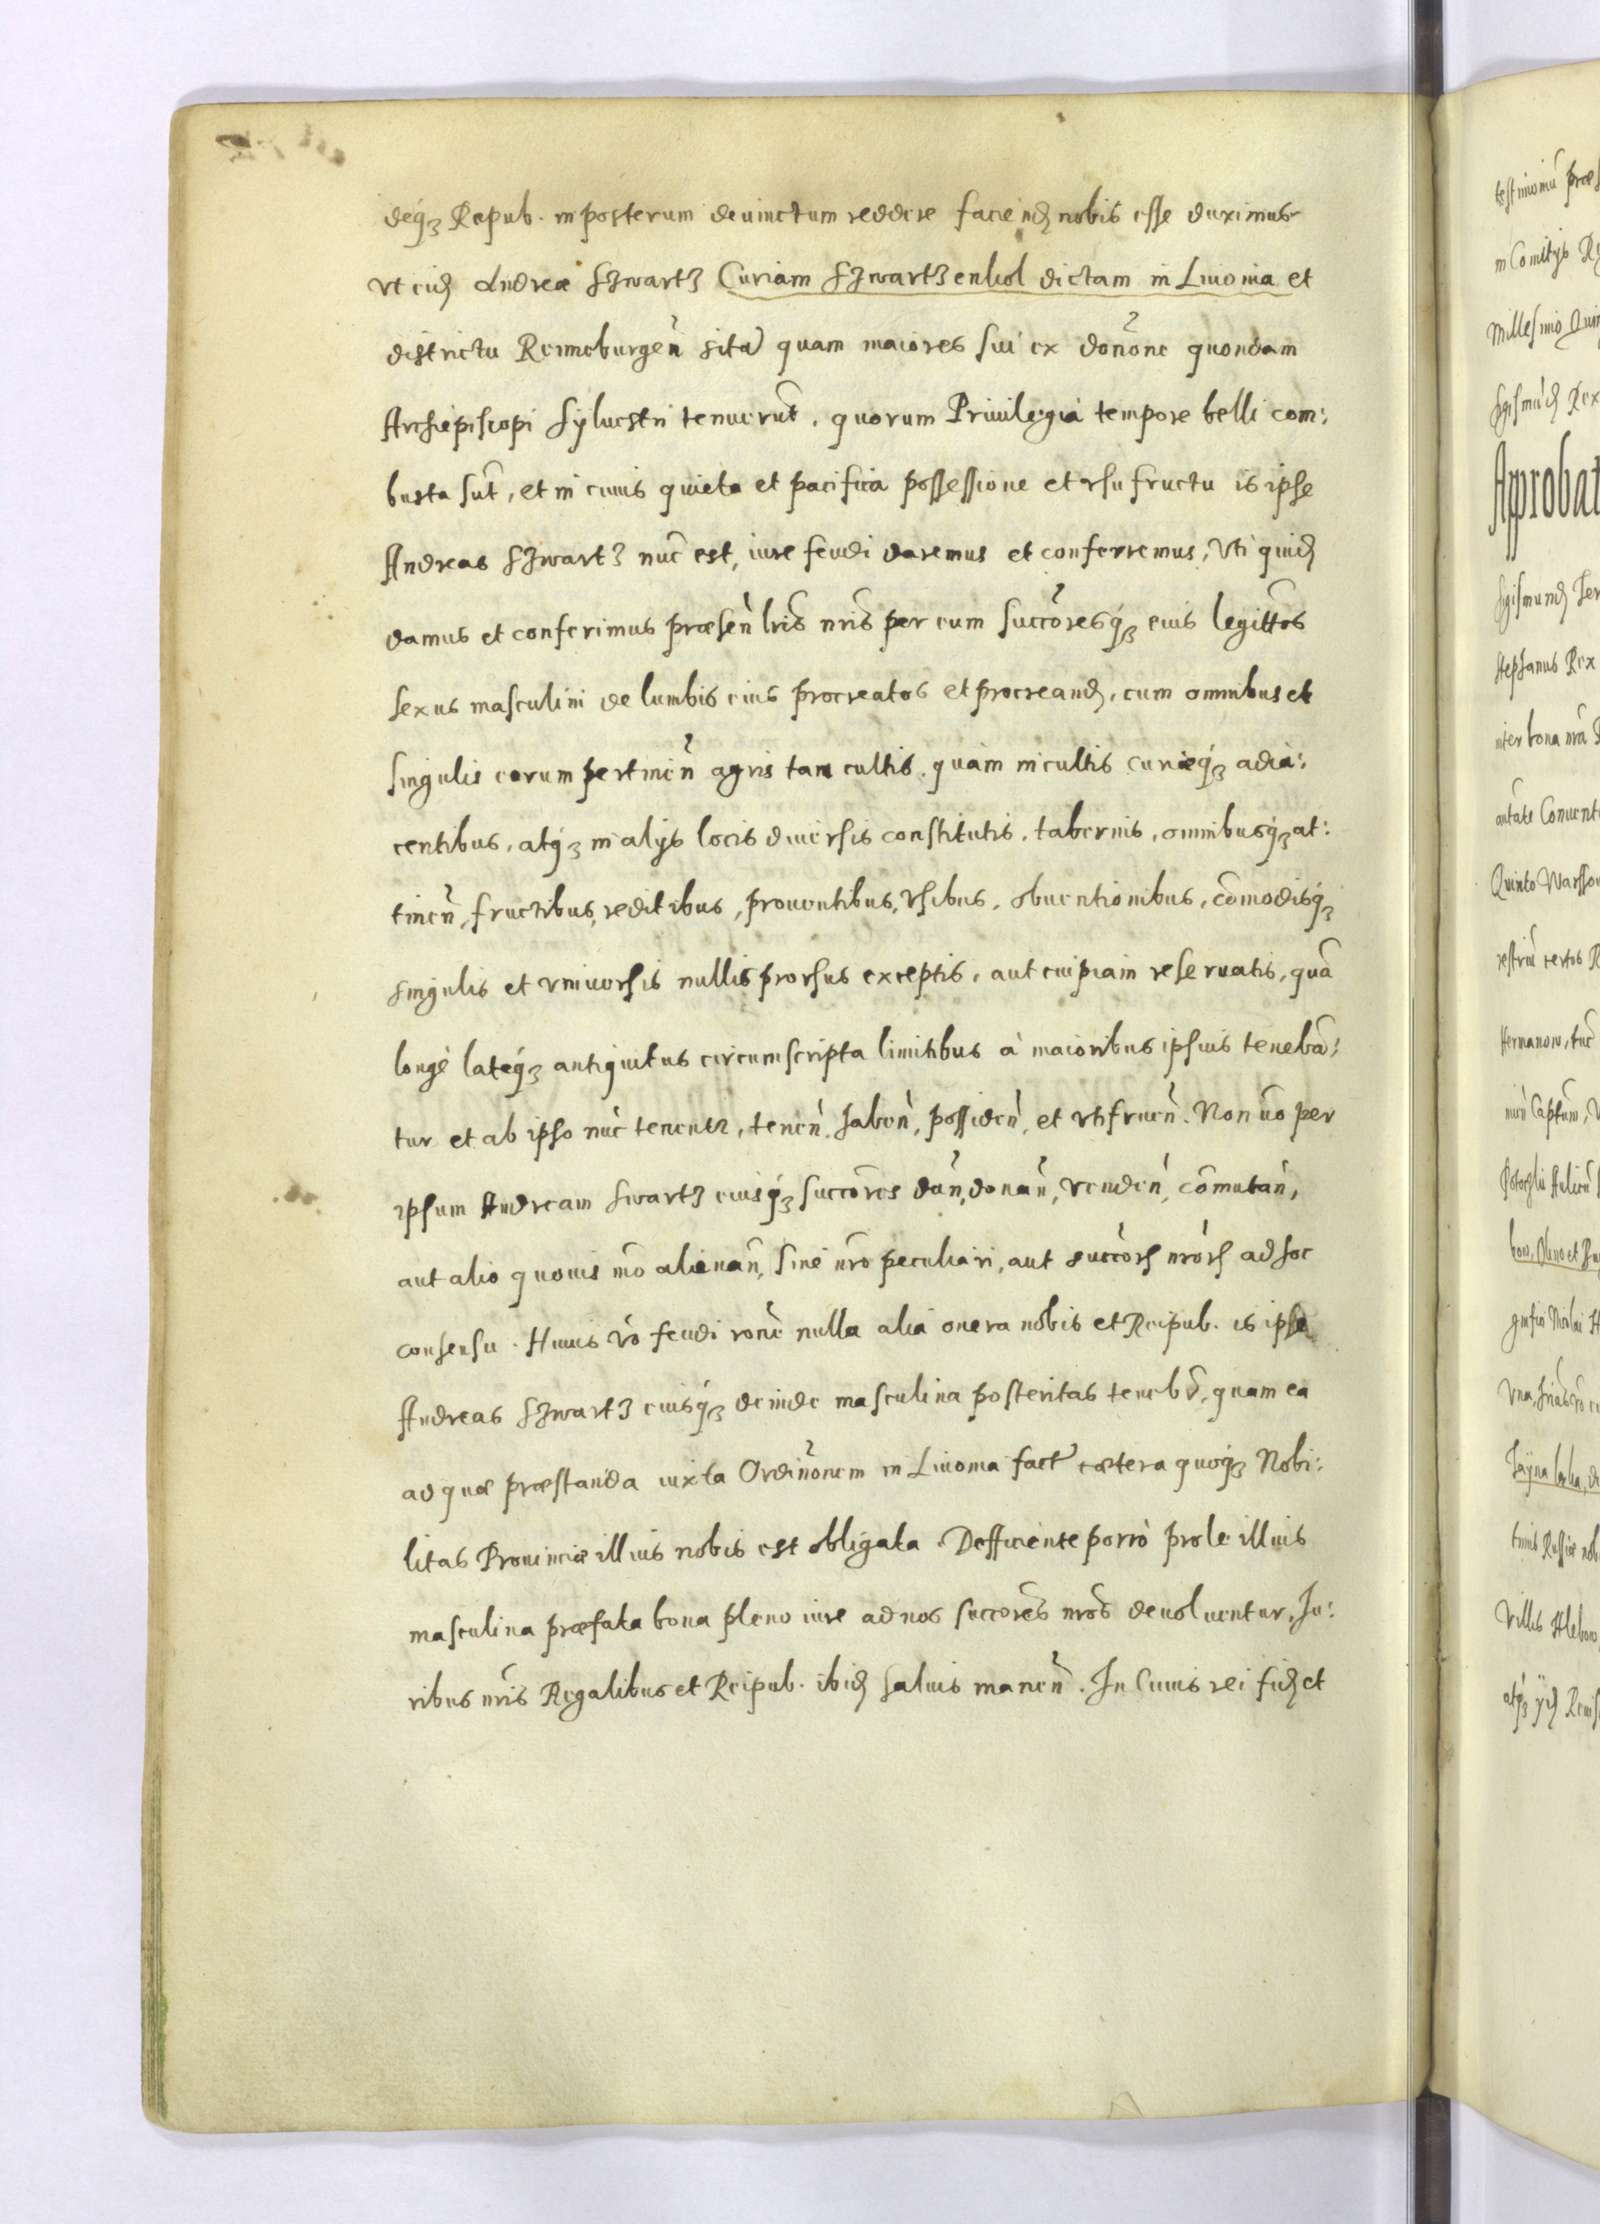 deq₃ Repub. in posterum deuinctum reddere faciend nobis esse duximus
vt eid Andreæ Szwartz Curiam Szwartzenhol dictam in Liuonia et
districtu Renneburgeñ sitã quam maiores sui ex donõne quondam
Archiepiscopi Syluestri tenuerũt, quorum Priuilegia tempore belli com:
busta sũt, et in cuius quieta et pacifica possessione et vsufructu is ipse
Andreas Szwartz nũc est, iure feudi daremus et conferremus, Vti quid
damus et conferimus præseñ lr̃is nr̃is per eum succõresq́₃ eius legittõs
sexus masculini de lumbis eius procreatos et procreand, cum omnibus et
singulis eorum pertineñ agris tam cultis quàm incultis curiæq́₃ adia:
centibus, atq́₃ in alijs locis diuersis constitutis, tabernis, omnibusq́₃ at:
tineñ, fructibus, reditibus, prouentibus, vsibus, obuentionibus, cõmodisq́₃
singulis et vniuersis nullis prorsus exceptis, aut cuipiam reseruatis, quã
longè lateq́₃ antiquitus circumscripta limitibus à maioribus ipsius tenebã:
tur et ab ipso nũc tenentr, teneñ, habeñ, possideñ, et vtifrueñ. Non ṽo per
ipsum Andream Swartz eiusq́₃ succõres dañ, donañ, vendeñ, cõmutañ,
aut alio quouis mõ alienañ, sine nr̃o peculiari, aut succor̃ nror̃ ad hoc
consensu. Huius ṽo feudi rõne nulla alia onera nobis et Reipub. is ipse
Andreas Szwartz eiusq́₃ deinde masculina posteritas teneb̃, quam ea
ad quæ præstanda iuxta Ordinõnem in Liuonia fact̃ cætera quoq́₃ Nobi:
litas Prouinciæ illius nobis est obligata. Defficiente porrò prole illius
masculina præfata bona pleno iure ad nos succõres nr̃os deuoluentur, Iu:
ribus nr̃is Regalibus et Reipub. ibid saluis maneñ. In Cuius rei fid et
testimoniũ præs
in Comitijs
Millesimo Quin
Rex
Approbat
Stephanus Rex
inter bona nr̃a
Conuent
Quinto Warsso
Villis